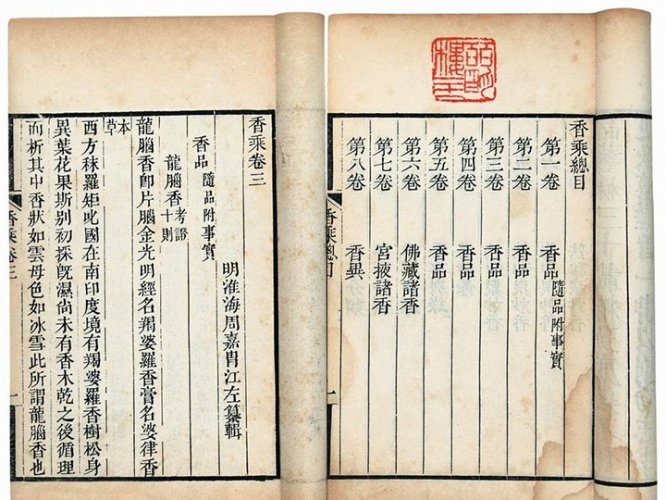 香乘總目
第一卷 香品 隨品附事實
第二卷 香品
第三卷 香品
第四卷 香品
第五卷 香品
第六卷 佛藏諸香
第七卷 宮掖諸香
第八卷 香異
香乘總目 一
香乘卷三
明淮海周嘉胄江左纂輯
香品 隨品附事實
龍腦香 考證十則
龍腦香卽片腦金光明經名羯婆羅香膏名婆律香
本草
西方秣羅矩叱國在南印度境有羯婆羅香樹松身
異葉花果斯别初採旣濕尚未有香木乾之後循理
而析其中香狀如雲母色如冰雪此所謂龍腦香也
香乘卷三 一